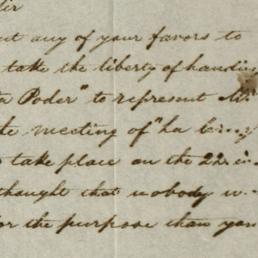 Sir
out any of your favors to
take the liberty of handing
a Poder" to represent
the meeting of "La
take place on the 22
thought that nobody
for the purpose than you